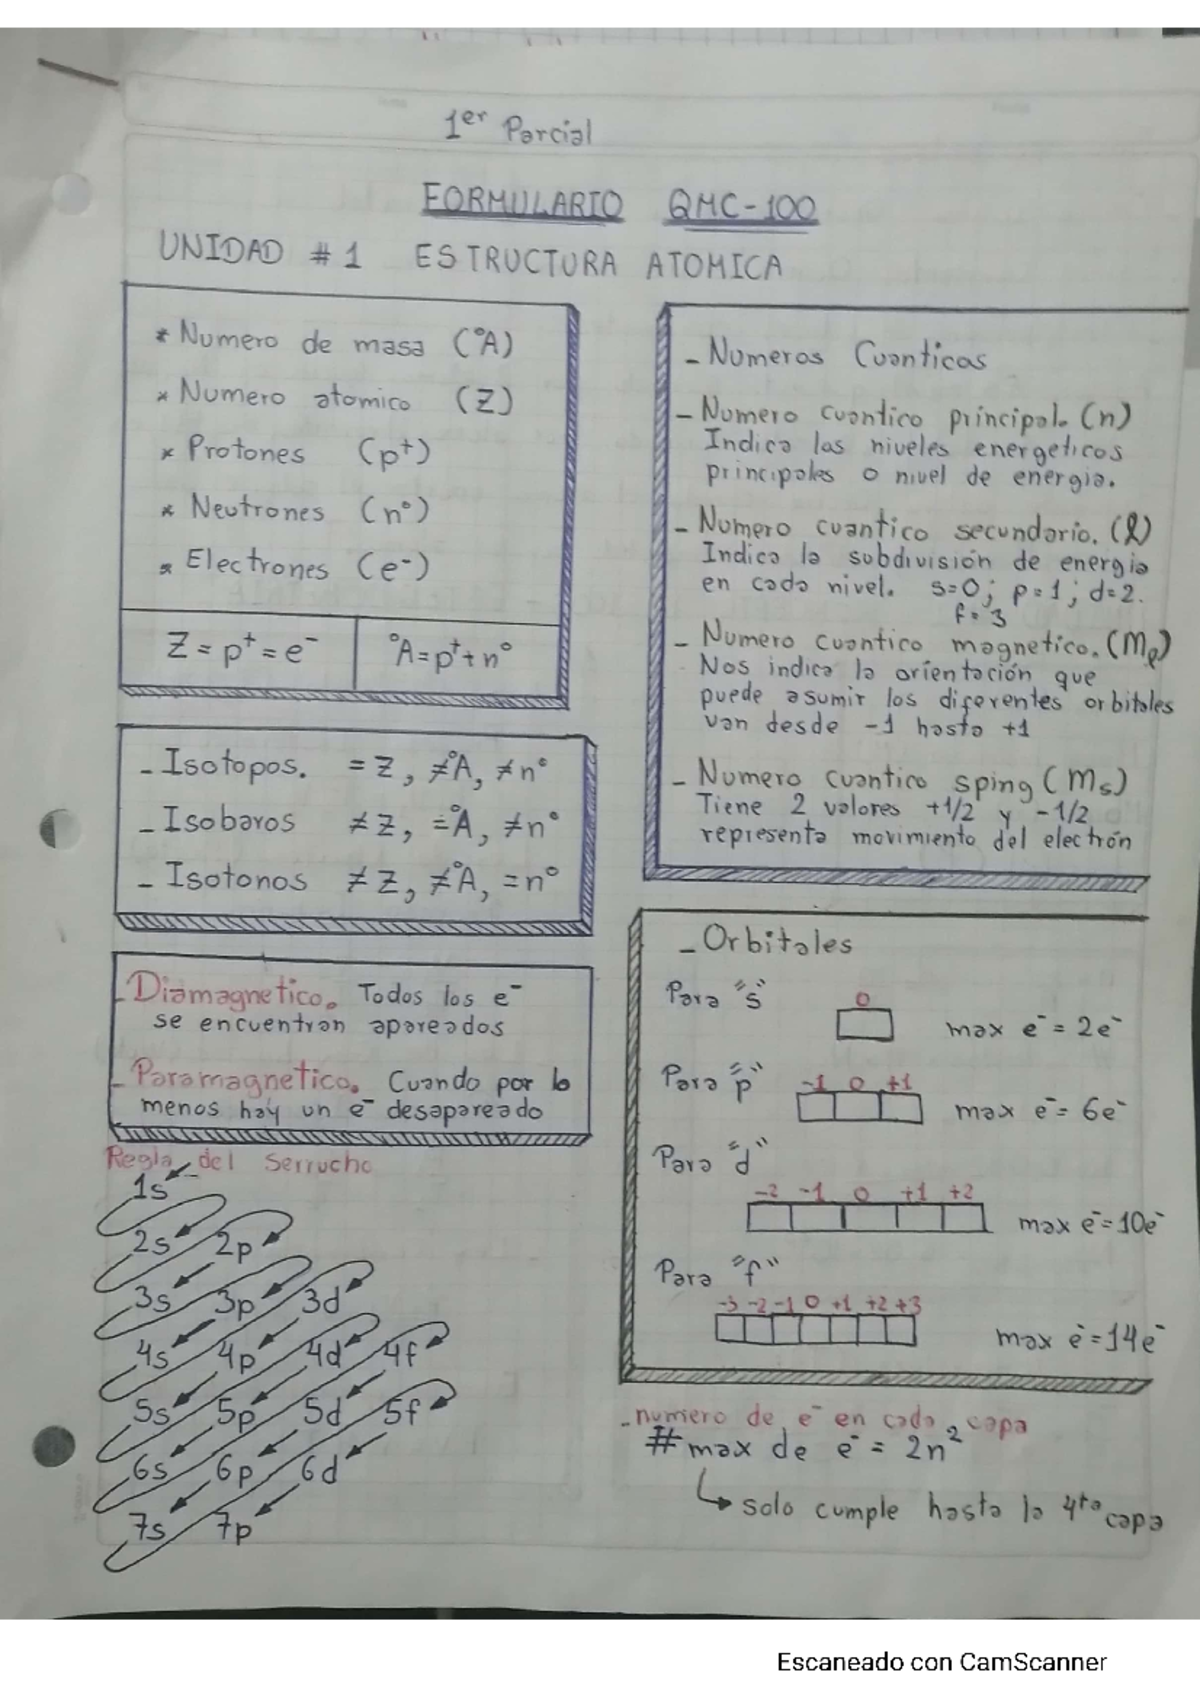 1er Parcial
FORMULARIO QMC-100
UNIDAD #1 ESTRUCTURA ATOMICA
* Numero de masa (°A)
* Numero atomico (Z)
* Protones (p⁺)
* Neutrones (n°)
* Electrones (e⁻)
Z = p⁺ = e⁻
°A = p⁺ + n°
- Isotopos. = Z, ≠°A, ≠ n°
- Isobaros ≠ Z, =°A, ≠ n°
- Isotonos ≠ Z, ≠°A, = n°
- Diamagnetico. Todos los e⁻
se encuentran apareados
- Paramagnetico. Cuando por lo
menos hay un e⁻ desapareado
Regla del Serrucho
1s
2s 2p
3s 3p 3d
4s 4p 4d 4f
5s 5p 5d 5f
6s 6p 6d
7s 7p
- Numeros Cuanticos
- Numero cuantico principal. (n)
Indica los niveles energeticos
principales o nivel de energia.
- Numero cuantico secundario. (l)
Indica la subdivisión de energia
en cada nivel. s=0; p=1; d=2.
f=3
- Numero cuantico magnetico. (Mℓ)
Nos indica la orientación que
puede asumir los diferentes orbitales
van desde -1 hasta +1
- Numero cuantico sping (Ms)
Tiene 2 valores +1/2 y -1/2
representa movimiento del electrón
- Orbitales
Para "s"
0
max e⁻ = 2e⁻
Para "p"
-1 0 +1
max e⁻ = 6e⁻
Para "d"
-2 -1 0 +1 +2
max e⁻ = 10e⁻
Para "f"
-3 -2 -1 0 +1 +2 +3
max e⁻ = 14e⁻
- numero de e⁻ en cada capa
# max de e⁻ = 2n²
↳ solo cumple hasta la 4ta capa
Escaneado con CamScanner